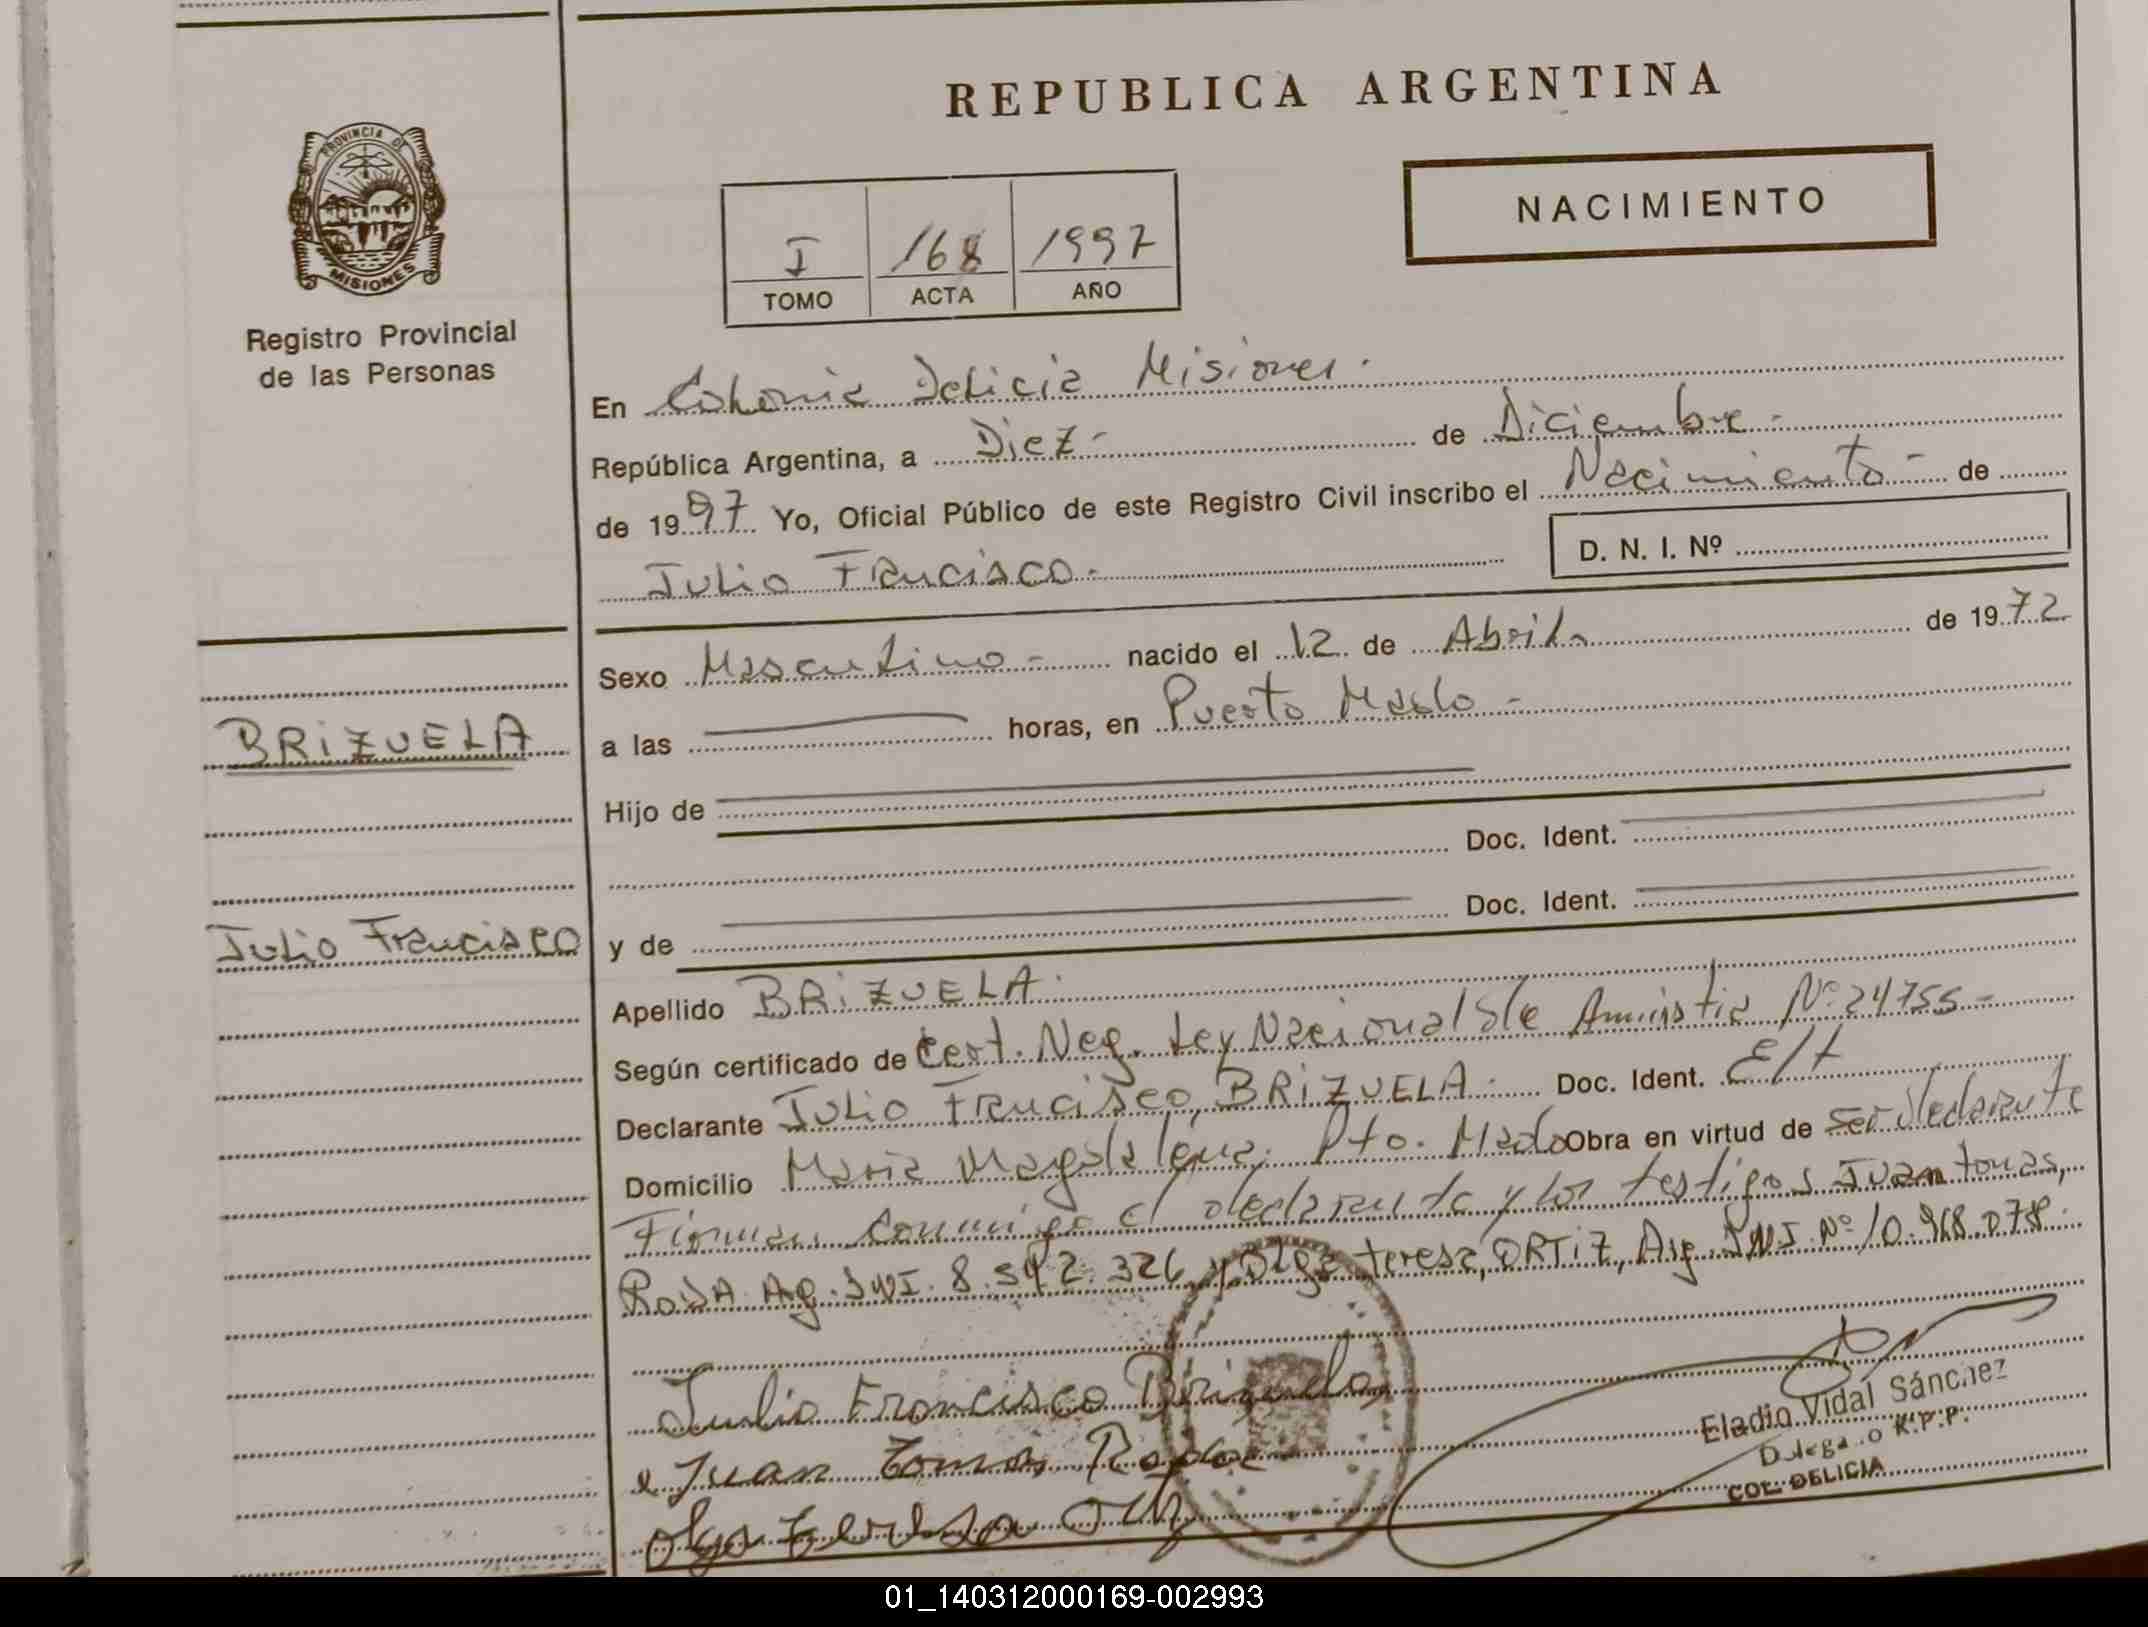 REPUBLICA ARGENTINA
PROVINCIA DE
MISIONES
Registro Provincial
de las Personas
NACIMIENTO
I 168 1997
TOMO ACTA AÑO
En Colonia Delicia Misiones.
República Argentina, a Diez - de Diciembre -
de 1997 Yo, Oficial Público de este Registro Civil inscribo el Nacimiento - de
Julio Francisco -
D. N. I. Nº
Sexo Masculino - nacido el 12 de Abril de 1972
a las horas, en Puerto Mado -
Hijo de
Doc. Ident.
y de Doc. Ident.
BRIZUELA
Julio Francisco
Apellido BRIZUELA.
Según certificado de Cert. Neg. Ley Nacional de Amnistia Nº 24755 -
Declarante Julio Francisco, BRIZUELA. Doc. Ident. E/t
Domicilio Maria Magdalena. Pto. Mado Obra en virtud de ser declarante
Firman conmigo el declarante y los testigos Juan tomas,
RODA Ag. DNI. 8.542.326 y Olga teresa, ORTIZ, Arg. DNI. Nº 10.968.078.
Julio Francisco Brizuela
Juan Tomas Roda
Olga teresa
Eladio Vidal Sánchez
Delegado R.P.P.
COL. DELICIA
01_140312000169-002993